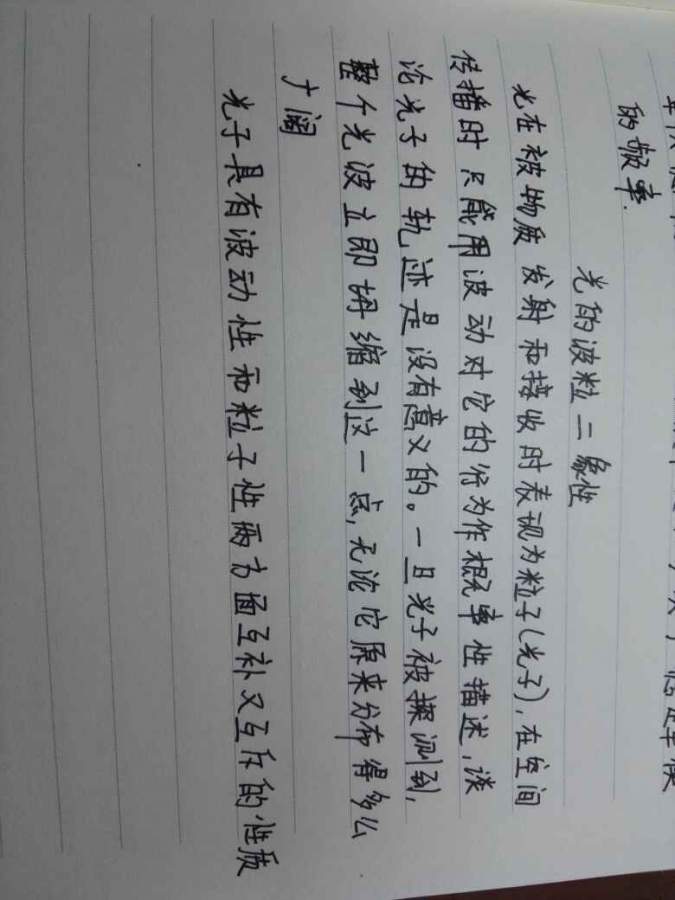 的频率.
光的波粒二象性
光在被物质发射和接收时表现为粒子(光子),在空间
传播时只能用波动对它的行为作概率性描述,谈
论光子的轨迹是没有意义的。一旦光子被探测到,
整个光波立即坍缩到这一点,无论它原来分布得多么
广阔
光子具有波动性和粒子性两方面互补又互斥的性质